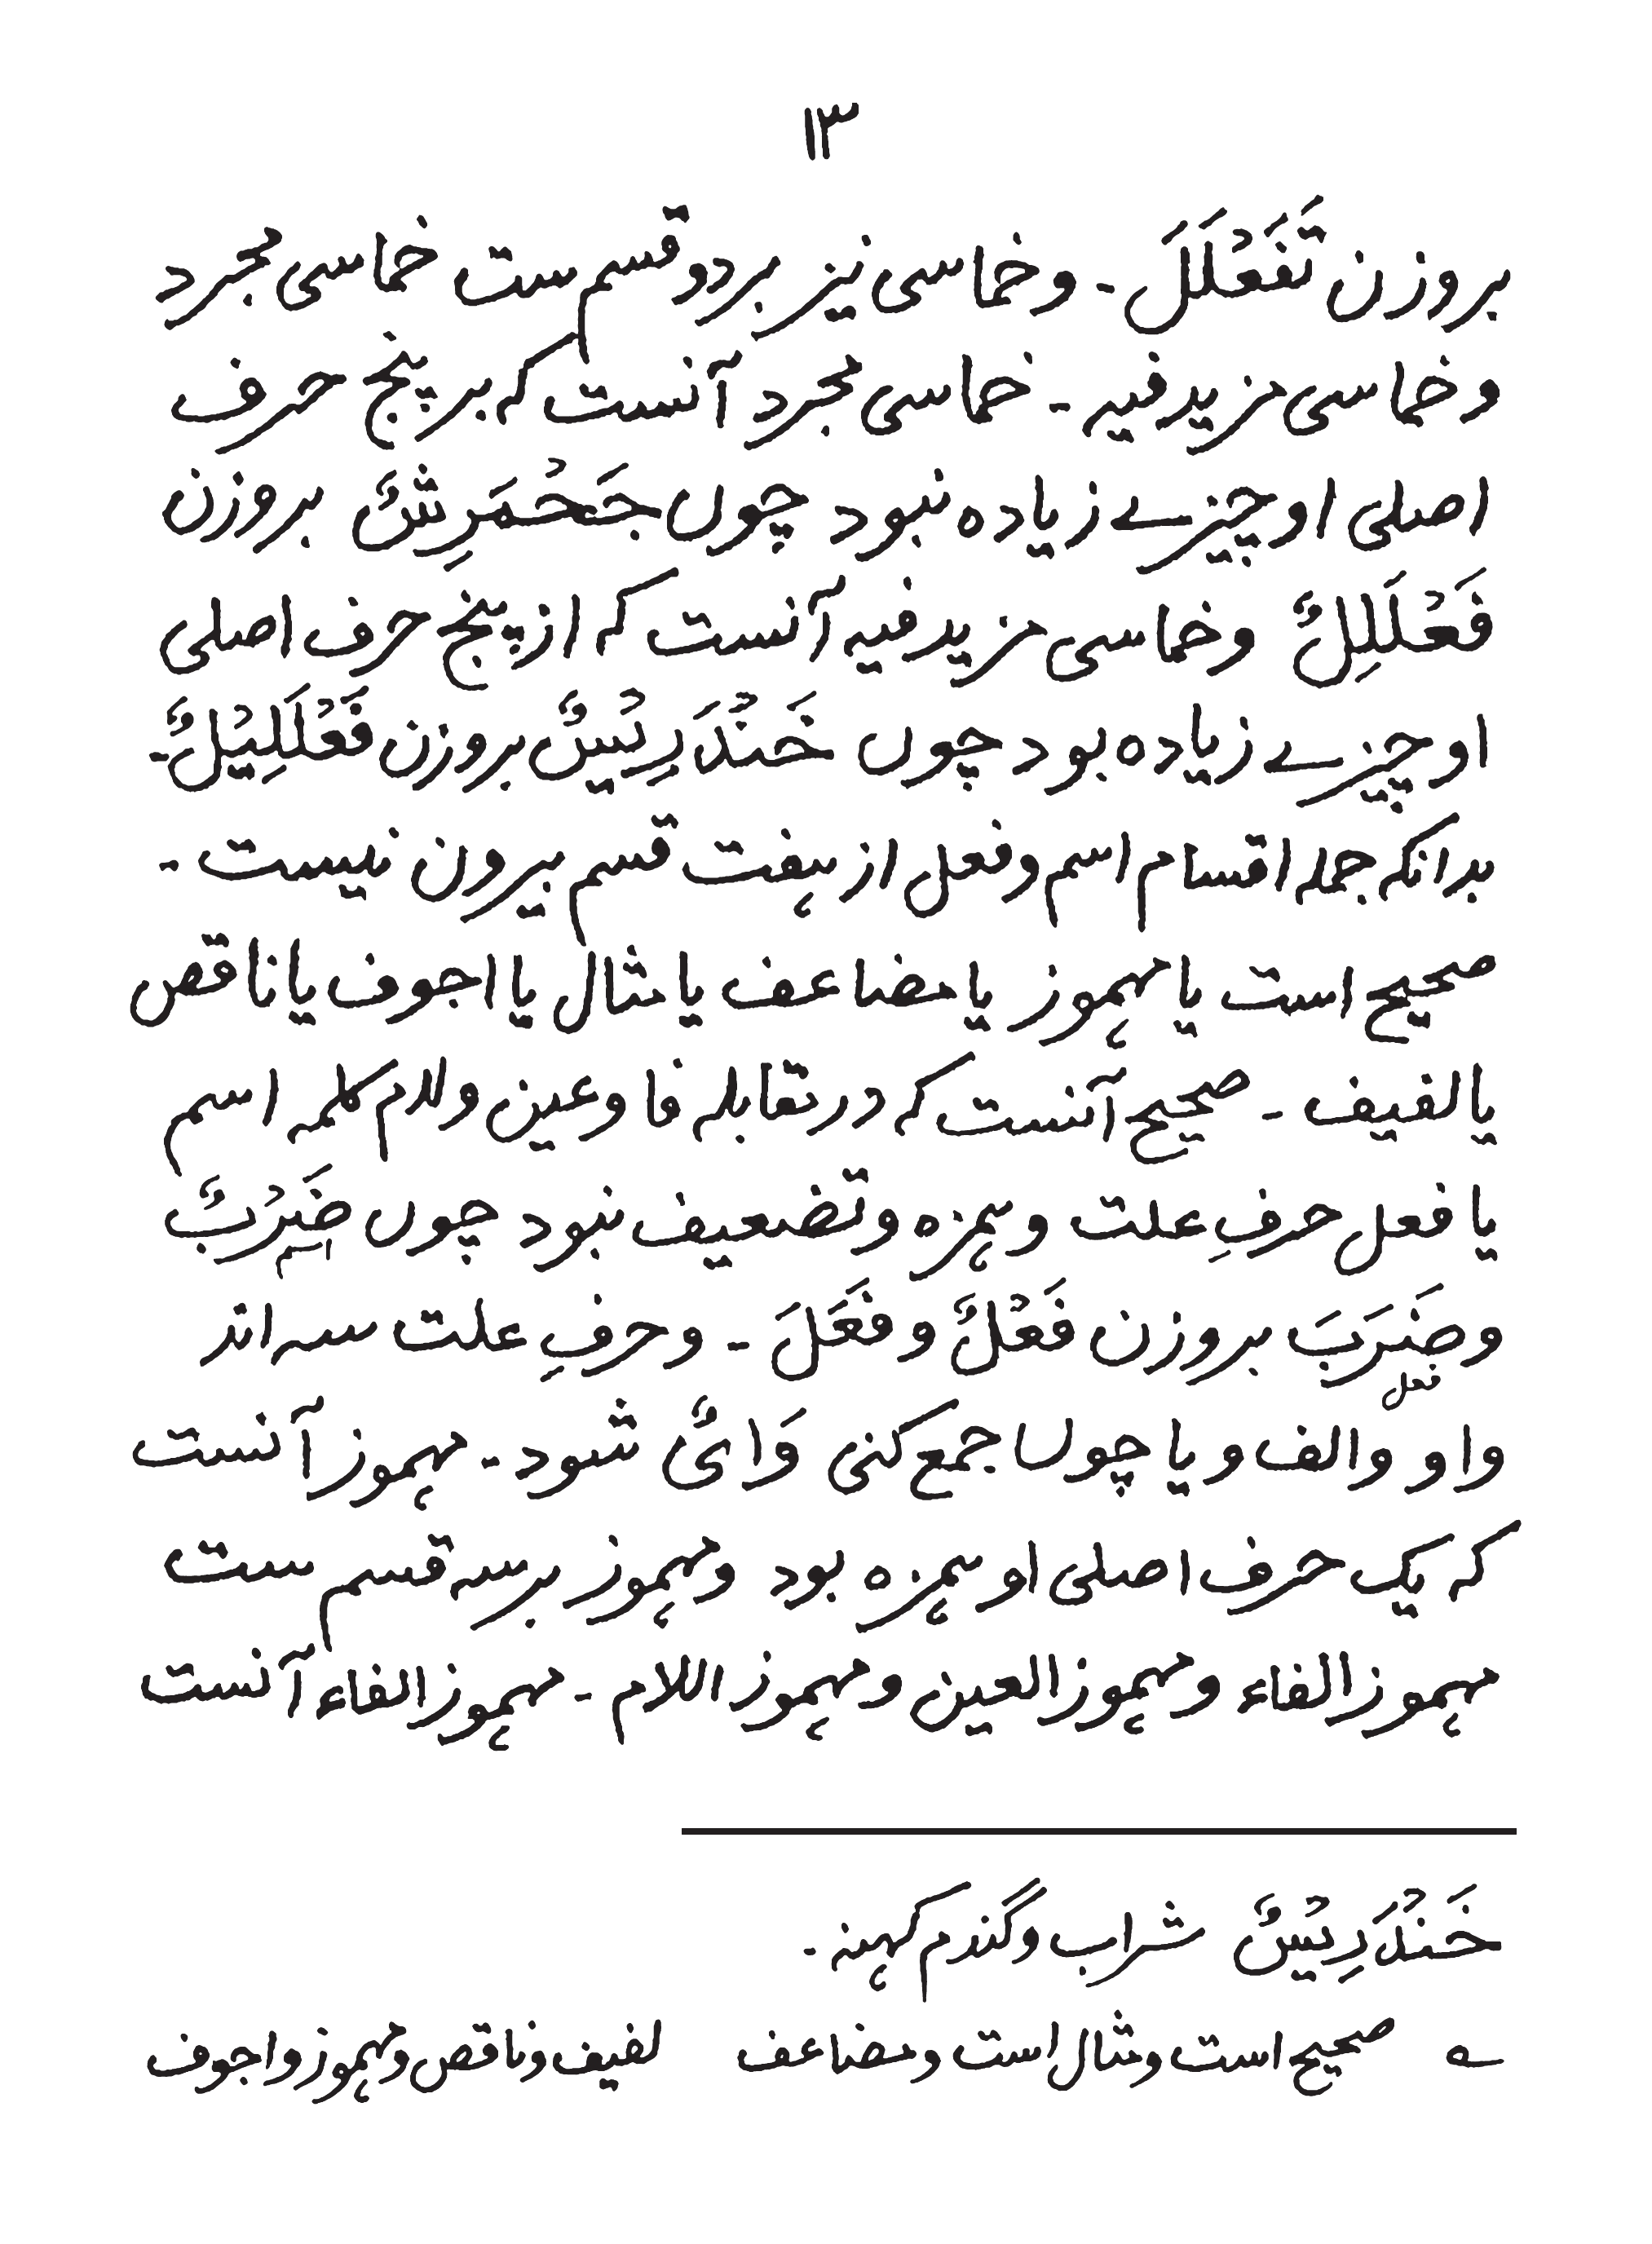 ۱۳
بروزن تَفَعْلَلَ ۔ وخماسی نیز بردو قسم ست خماسی مجرد
وخماسی مزید فیہ ۔ خماسی مجرد آنست کہ بر پنج حرف
اصلی او چیزے زیادہ نبود چوں جَحْمَرِشٌ بروزن
فَعْلَلِلٌ وخماسی مزید فیہ آنست کہ از پنج حرف اصلی
او چیزے زیادہ بود چوں خَنْدَرِیْسٌ بروزن فَعْلَلِیْلٌ۔
بدانکہ جملہ اقسام اسم وفعل از ہفت قسم بیرون نیست ۔
صحیح است یا مہموز یا مضاعف یا مثال یا اجوف یا ناقص
یا لفیف ۔ صحیح آنست کہ در مقابلہ فا وعین ولام کلمہ اسم
یا فعل حرفِ علت وہمزہ وتضعیف نبود چوں ضَرْبٌ
اسم
وضَرَبَ بروزن فَعْلٌ وفَعَلَ ۔ وحرفِ علت سہ اند
فعل
واو والف ویا چوں جمع کنی وَایٌ شود ۔ مہموز آنست
کہ یک حرف اصلی او ہمزہ بود ومہموز برسہ قسم ست
مہموز الفاء ومہموز العین ومہموز اللام ۔ مہموز الفاء آنست
خَنْدَرِیْسٌ شراب وگندم کہنہ ۔
؎ صحیح است ومثال است ومضاعف لفیف وناقص ومہموز واجوف